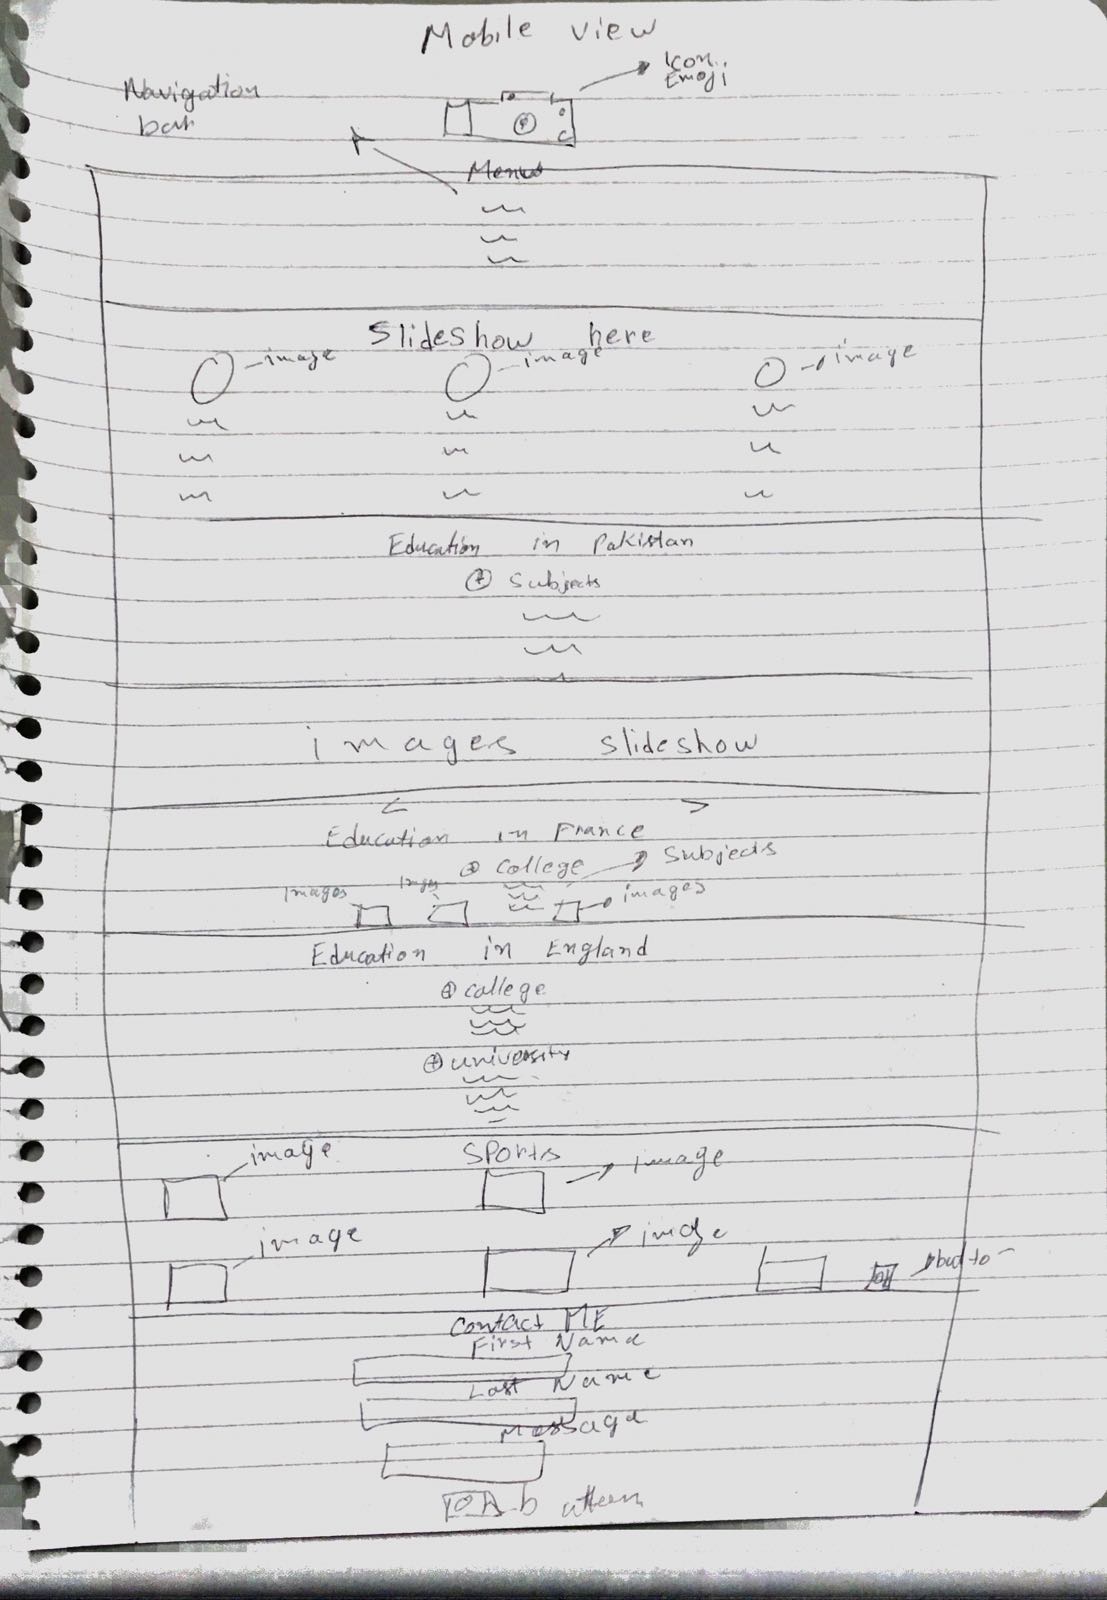 Mobile view
Icon..
Emoji
Navigation
bar
Menus
Slideshow here
image
image
image
Education in Pakistan
+ Subjects
images slideshow
< >
Education in France
+ college
Subjects
Images
Imges
images
Education in England
+ college
+ university
Sports
image
image
image
image
Contact ME
First Name
Last Name
Message